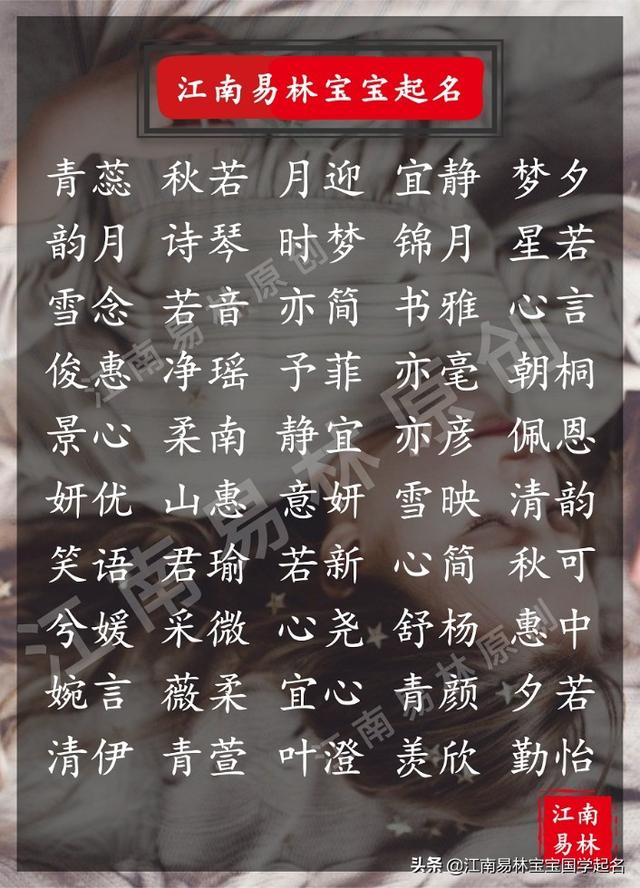 江南易林宝宝起名
青蕊 秋若 月迎 宜静 梦夕
韵月 诗琴 时梦 锦月 星若
雪念 若音 亦简 书雅 心言
俊惠 净瑶 予菲 亦毫 朝桐
景心 柔南 静宜 亦彦 佩恩
妍优 山惠 意妍 雪映 清韵
笑语 君瑜 若新 心简 秋可
兮媛 采微 心尧 舒杨 惠中
婉言 薇柔 宜心 青颜 夕若
清伊 青萱 叶澄 羡欣 勤怡
江南易林原创
江南易林原创
江南易林原创
江南
易林
头条 @江南易林宝宝国学起名